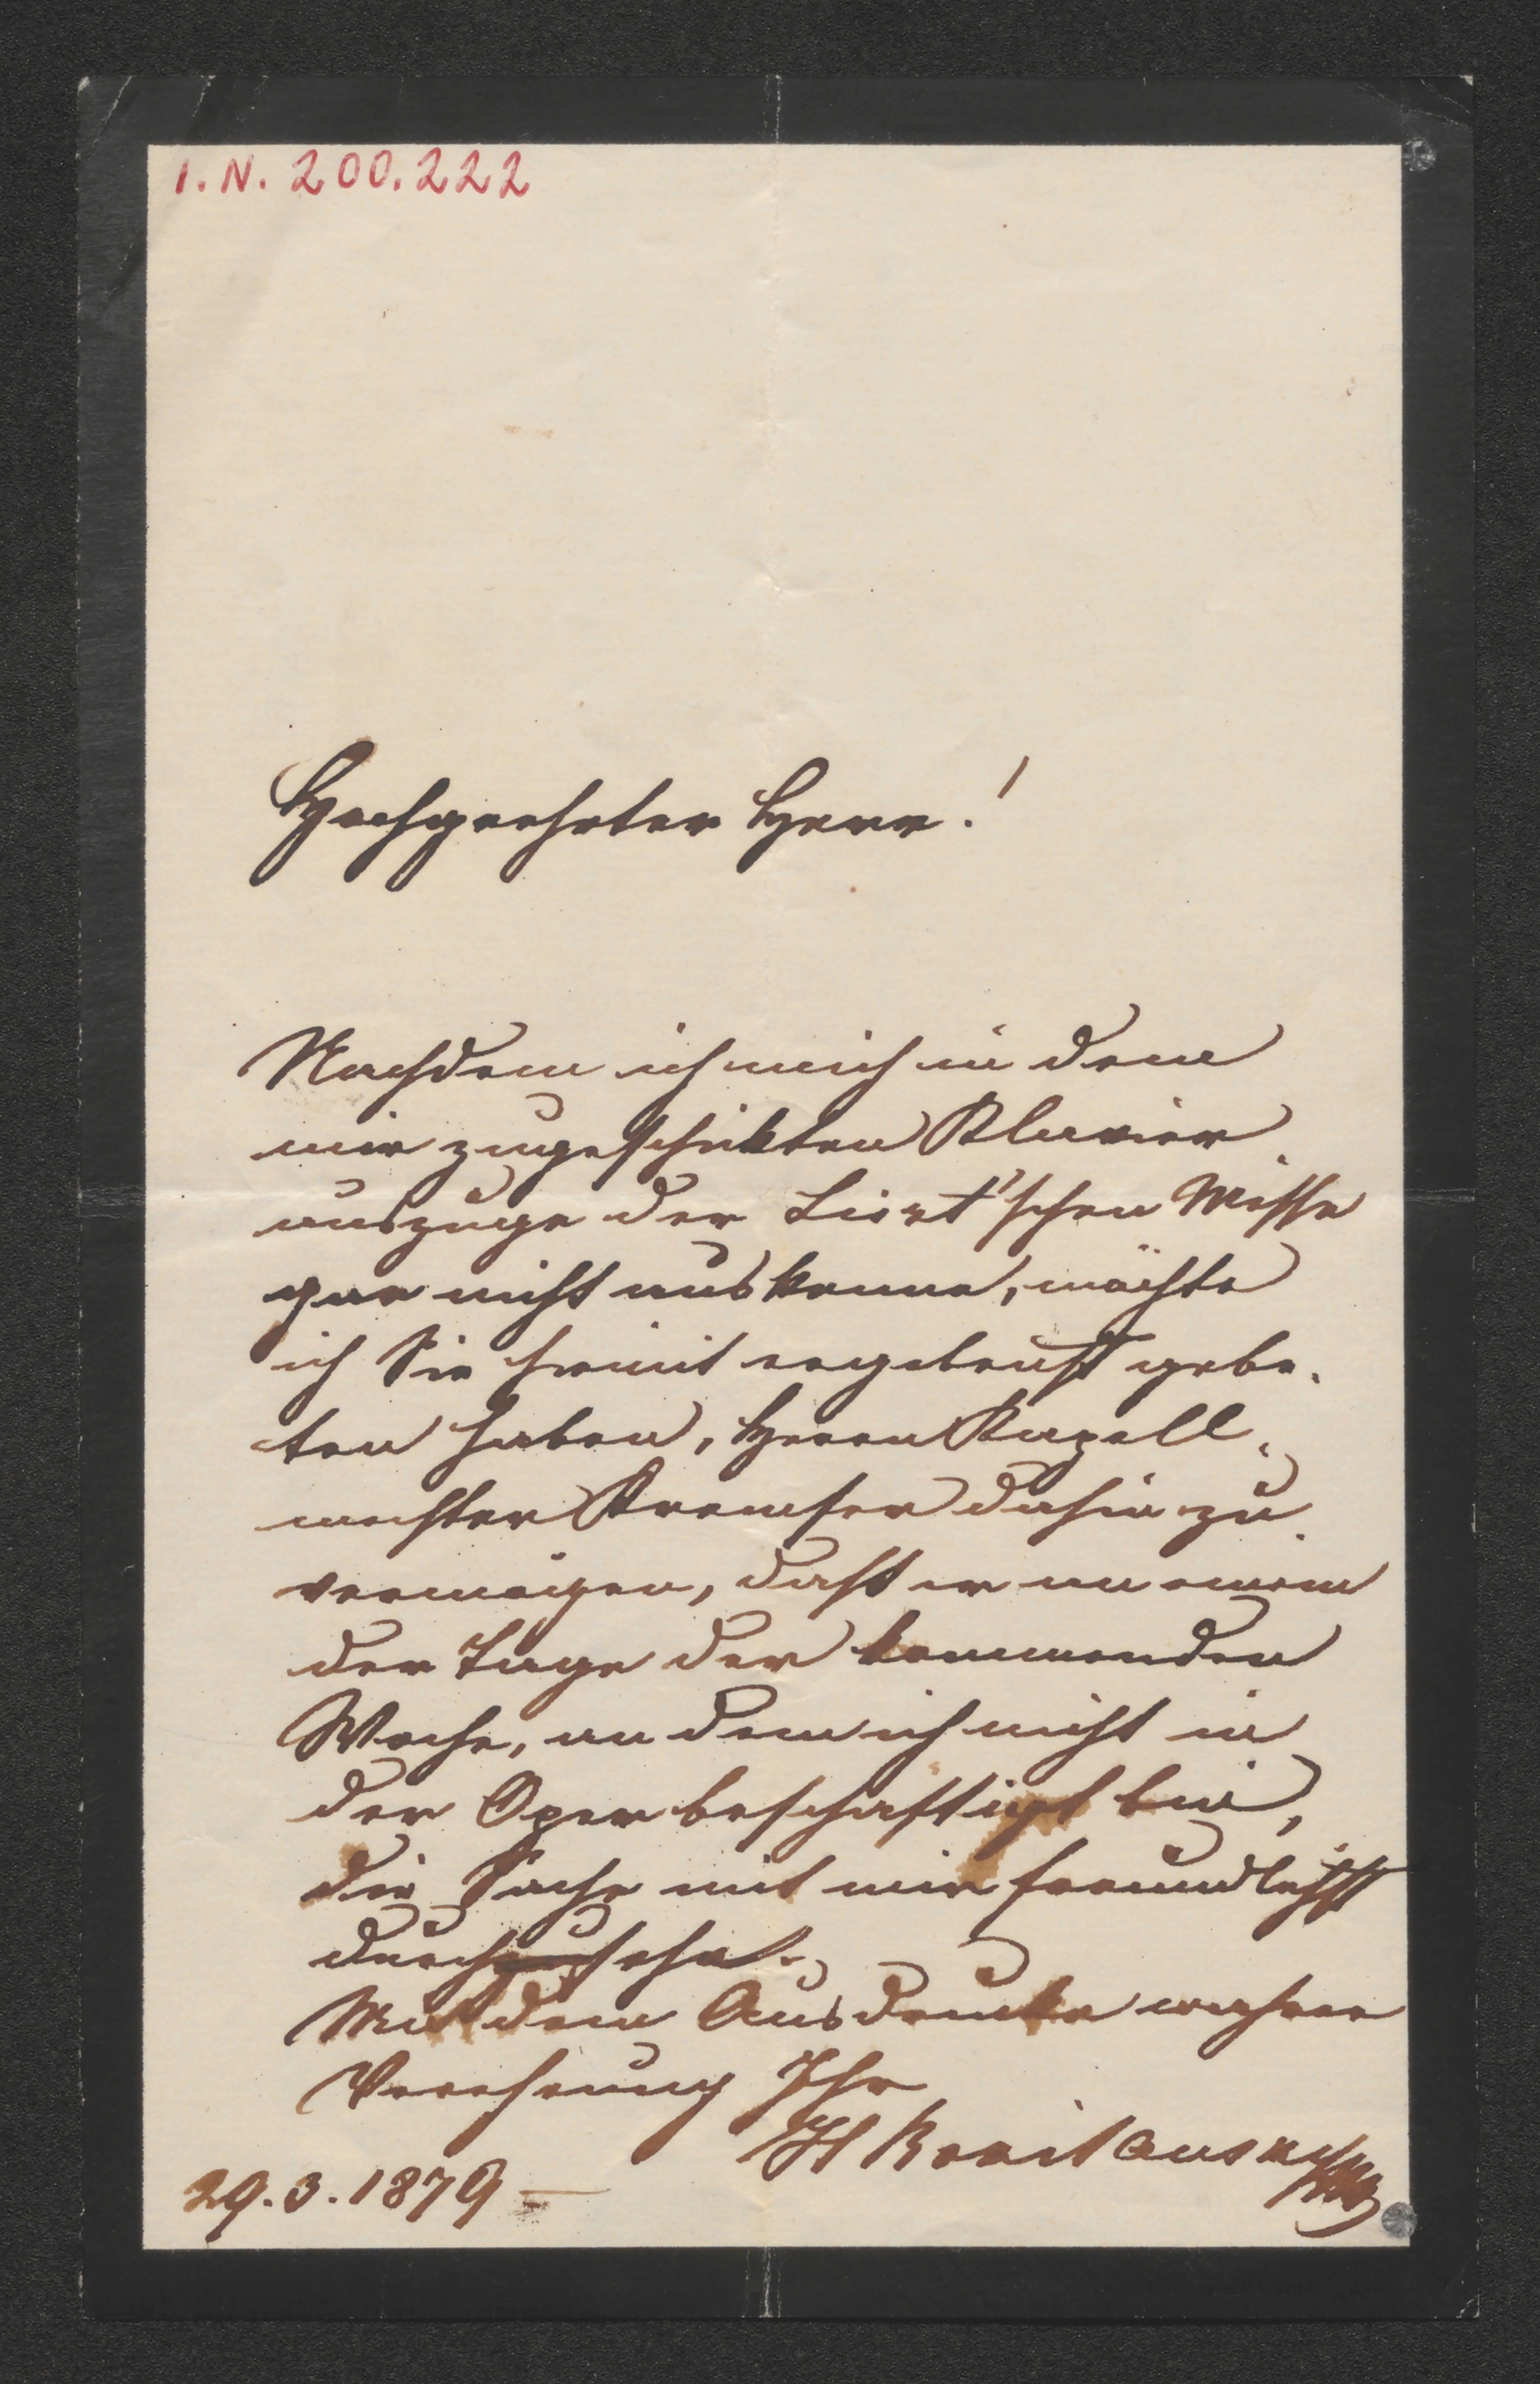 I.N. 200.222
Hochgeehrter Herr!
Nachdem ich mich in dem
mir zugeschikten Klavier-
auszuge der Liszt'schen Messe
gar nicht auskenne, möchte
ich Sie hiemit ergebenst gebe-
ten haben, Herrn Kapell-
meister Kremser dahin zu
vermögen, daß er an einem
der Tage der kommenden
Woche, an dem ich nicht in
der Oper beschäftigt bin,
die Sache mit mir freundlichst
durchsehe.
Mit dem Ausdrucke wahrer
Verehrung Ihr
29.3.1879